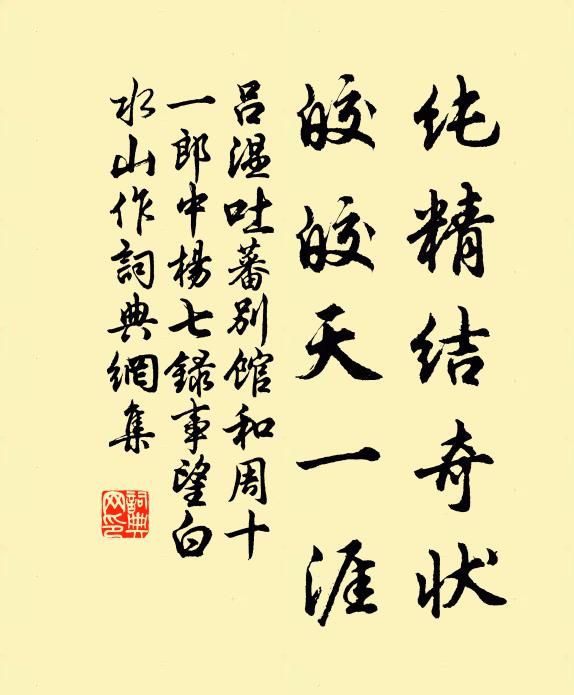 纯精结奇状
皎皎天一涯
吕温吐蕃别馆和周十
一郎中杨七録事望白
水山作詞典網集
詞典
网印